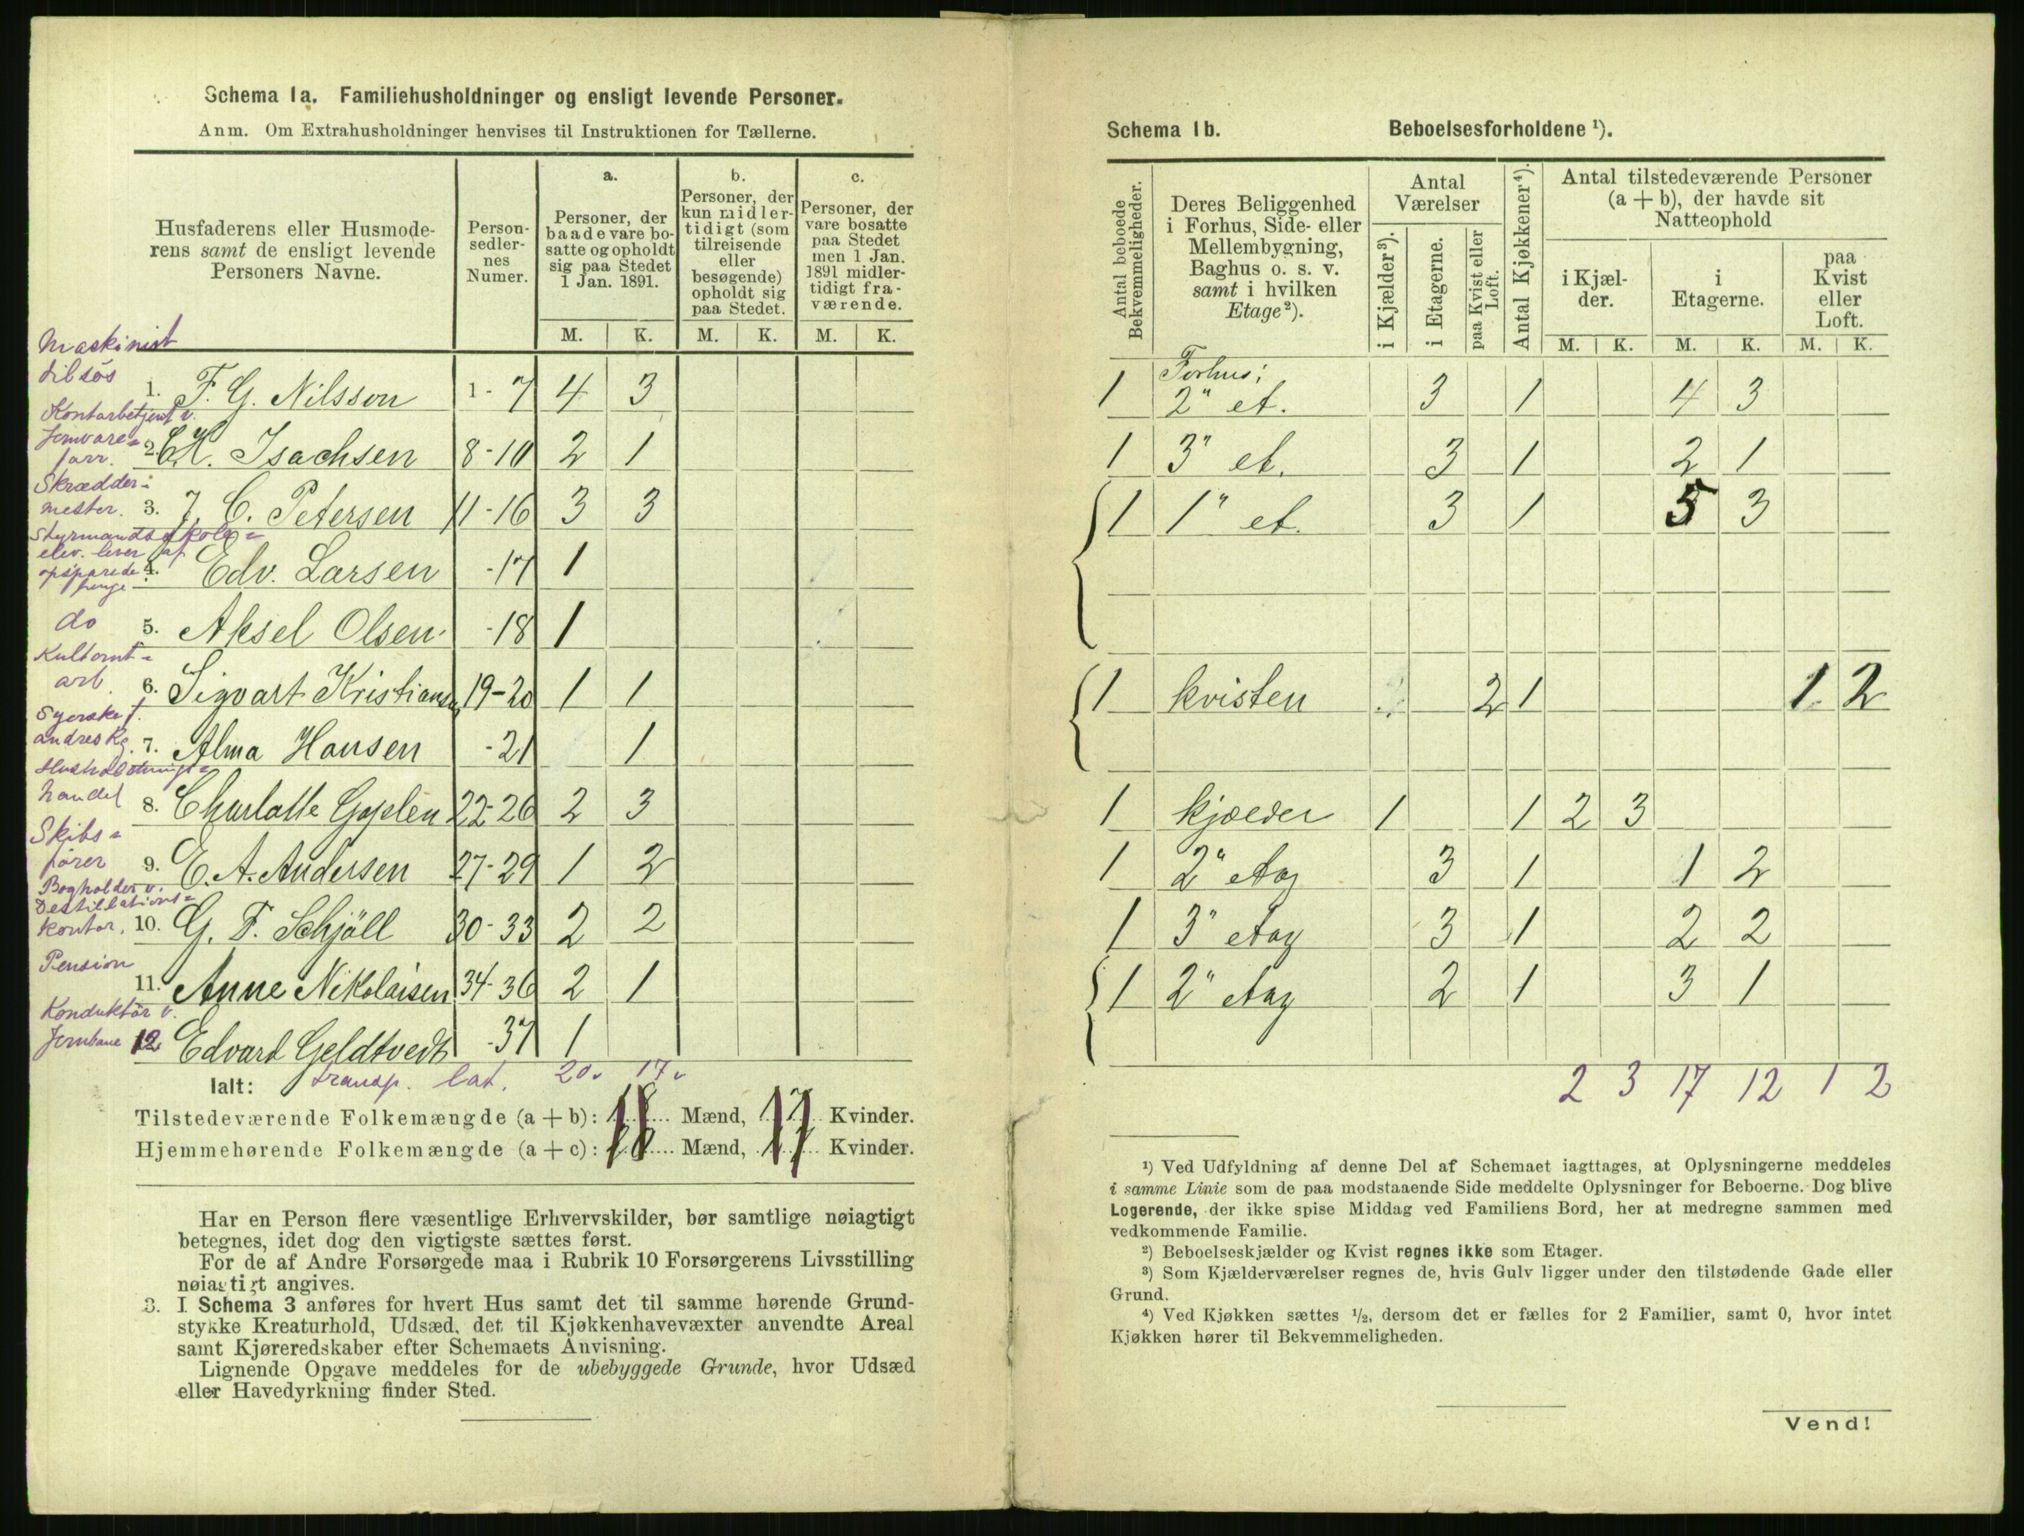 Schema 1a. Familiehusholdninger og ensligt levende Personer.
Anm. Om Extrahusholdninger henvises til Instruktionen for Tællerne.
Husfaderens eller Husmode-
rens samt de ensligt levende
Personers Navne.
Person-
sedler-
nes
Numer.
a.
Personer, der
baade vare bo-
satte og opholdt
sig paa Stedet
1 Jan. 1891.
b.
Personer, der
kun midler-
tidigt (som
tilreisende
eller
besøgende)
opholdt sig
paa Stedet.
c.
Personer, der
vare bosatte
paa Stedet
men 1 Jan.
1891 midler-
tidigt fra-
værende.
M. K. M. K. M. K.
Maskinist
tilsøs
1. F. G. Nilsson 1-7 4 3
Kontorbetjent v.
Jernvare=
forr.
2. C. H. Isachsen 8-10 2 1
Skrædder-
mester.
3. J. C. Petersen 11-16 3 3
Styrmandsskole=
elev. lever af
opsparede
penge
4. Edv. Larsen -17 1
do
5. Aksel Olsen -18 1
arb.
6. Sigvart Kristiansen 19-20 1 1
Syerske f.
andres Rg.
7. Alma Hansen -21 1
Husholdnings=
handel
8. Charlotte 22-26 2 3
Skibs=
fører
9. E. A. Andersen 27-29 1 2
Bogholder v.
Destillations=
kontor.
10. G. F. Schjöll 30-33 2 2
Pension
11. Anne Nikolaisen 34-36 2 1
Konduktør v.
Jernbane
12 Edvard Geldtvedt -37 1
Ialt: transp. lat. 20. 17.
Tilstedeværende Folkemængde (a + b): 18 Mænd, 17 Kvinder.
Hjemmehørende Folkemængde (a + c): 20 Mænd, 17 Kvinder.
Har en Person flere væsentlige Erhvervskilder, bør samtlige nøiagtigt
betegnes, idet dog den vigtigste sættes først.
For de af Andre Forsørgede maa i Rubrik 10 Forsørgerens Livsstilling
nøiagtigt angives.
3. I Schema 3 anføres for hvert Hus samt det til samme hørende Grund-
stykke Kreaturhold, Udsæd, det til Kjøkkenhavevæxter anvendte Areal
samt Kjøreredskaber efter Schemaets Anvisning.
Lignende Opgave meddeles for de ubebyggede Grunde, hvor Udsæd
eller Havedyrkning finder Sted.
Schema 1b. Beboelsesforholdene 1).
Antal beboede
Bekvemmeligheder.
Deres Beliggenhed
i Forhus, Side- eller
Mellembygning,
Baghus o. s. v.
samt i hvilken
Etage 2).
Antal
Værelser
i Kjælder 3).
i Etagerne.
paa Kvist eller
Loft.
Antal Kjøkkener 4).
Antal tilstedeværende Personer
(a + b), der havde sit
Natteophold
i Kjæl-
der.
i
Etagerne.
paa
Kvist
eller
Loft.
M. K. M. K. M. K.
Forhus;
1 2" et. 3 1 4 3
1 3" et. 3 1 2 1
1 1" et. 3 1 5 3
1 kvisten 2 1 1 2
1 kjælder 1 1 2 3
1 2" Etag 3 1 1 2
1 3" Etag 3 1 2 2
1 2" Etag 2 1 3 1
2 3 17 12 1 2
1) Ved Udfyldning af denne Del af Schemaet iagttages, at Oplysningerne meddeles
i samme Linie som de paa modstaaende Side meddelte Oplysninger for Beboerne. Dog blive
Logerende, der ikke spise Middag ved Familiens Bord, her at medregne sammen med
vedkommende Familie.
2) Beboelseskjælder og Kvist regnes ikke som Etager.
3) Som Kjælderværelser regnes de, hvis Gulv ligger under den tilstødende Gade eller
Grund.
4) Ved Kjøkken sættes 1/2, dersom det er fælles for 2 Familier, samt 0, hvor intet
Kjøkken hører til Bekvemmeligheden.
Vend!